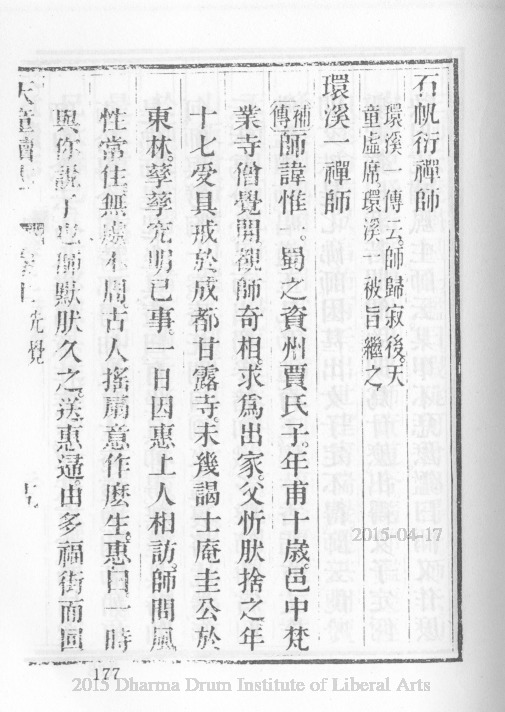 石帆衍禪師
環溪一傳云。師歸寂後。天
童虛席。環溪一被旨繼之。
環溪一禪師
補傳師諱惟一。蜀之資州賈氏子。年甫十歲。邑中梵
業寺僧覺開觀師奇相。求爲出家。父忻肰捨之。年
十七受具戒於成都甘露寺。未幾謁士庵圭公於
東林。孳孳究明已事。一日因惠上人相訪。師問風
性常住無處不周古人搖扇意作麽生。惠曰一時
與你說了也。師默肰久之。送惠還。由多福街而回
先覺
2015-04-17
177
2015 Dharma Drum Institute of Liberal Arts